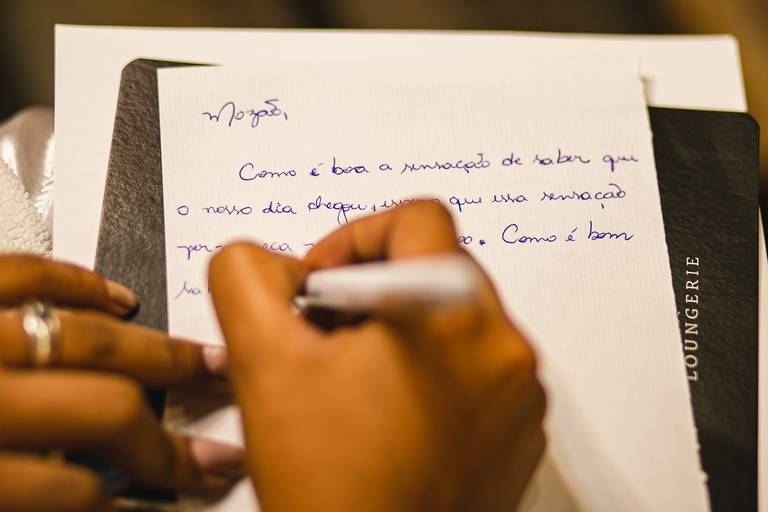 Mozão,
Como é boa a sensação de saber que
o nosso dia chegou, que essa sensação
Como é bom
LOUNGERIE